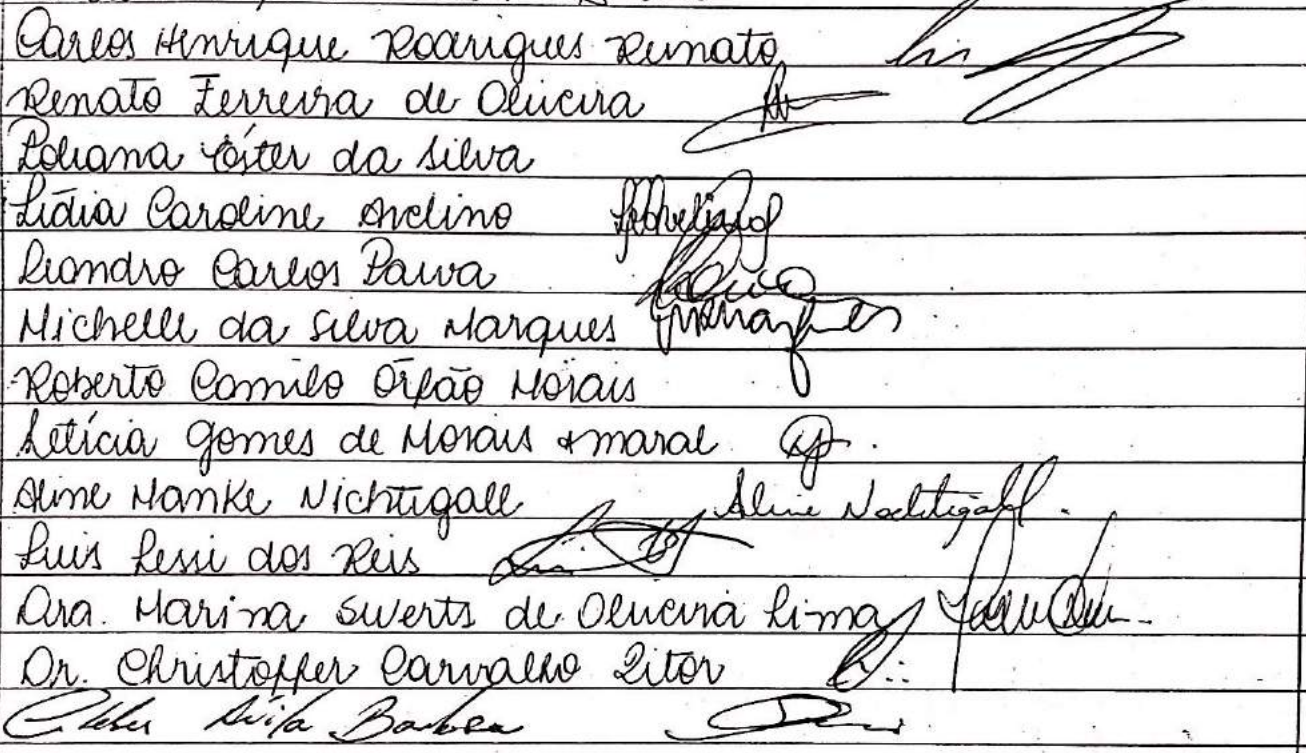 Carlos Henrique Rodrigues Renato
Renato Ferreira de Oliveira
Poliana Éster da Silva
Lídia Caroline Avelino
Leandro Carlos Paiva
Michelle da Silva Marques
Roberto Camilo Órfão Morais
Letícia Gomes de Morais Amaral
Aline Manke Nichtigall Aline Nachtigall
Luis Lessi dos Reis
Dra. Marina Swerts de Oliveira Lima
Dr. Christoffer Carvalho Vitor
Cleber Ávila Barbosa